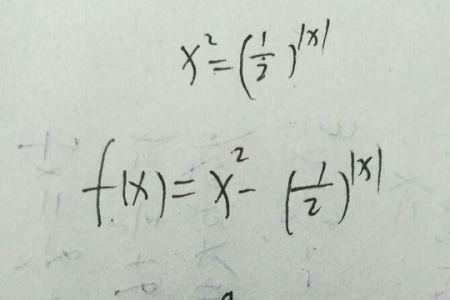 x² = (1/2)^|x|
f(x) = x² - (1/2)^|x|